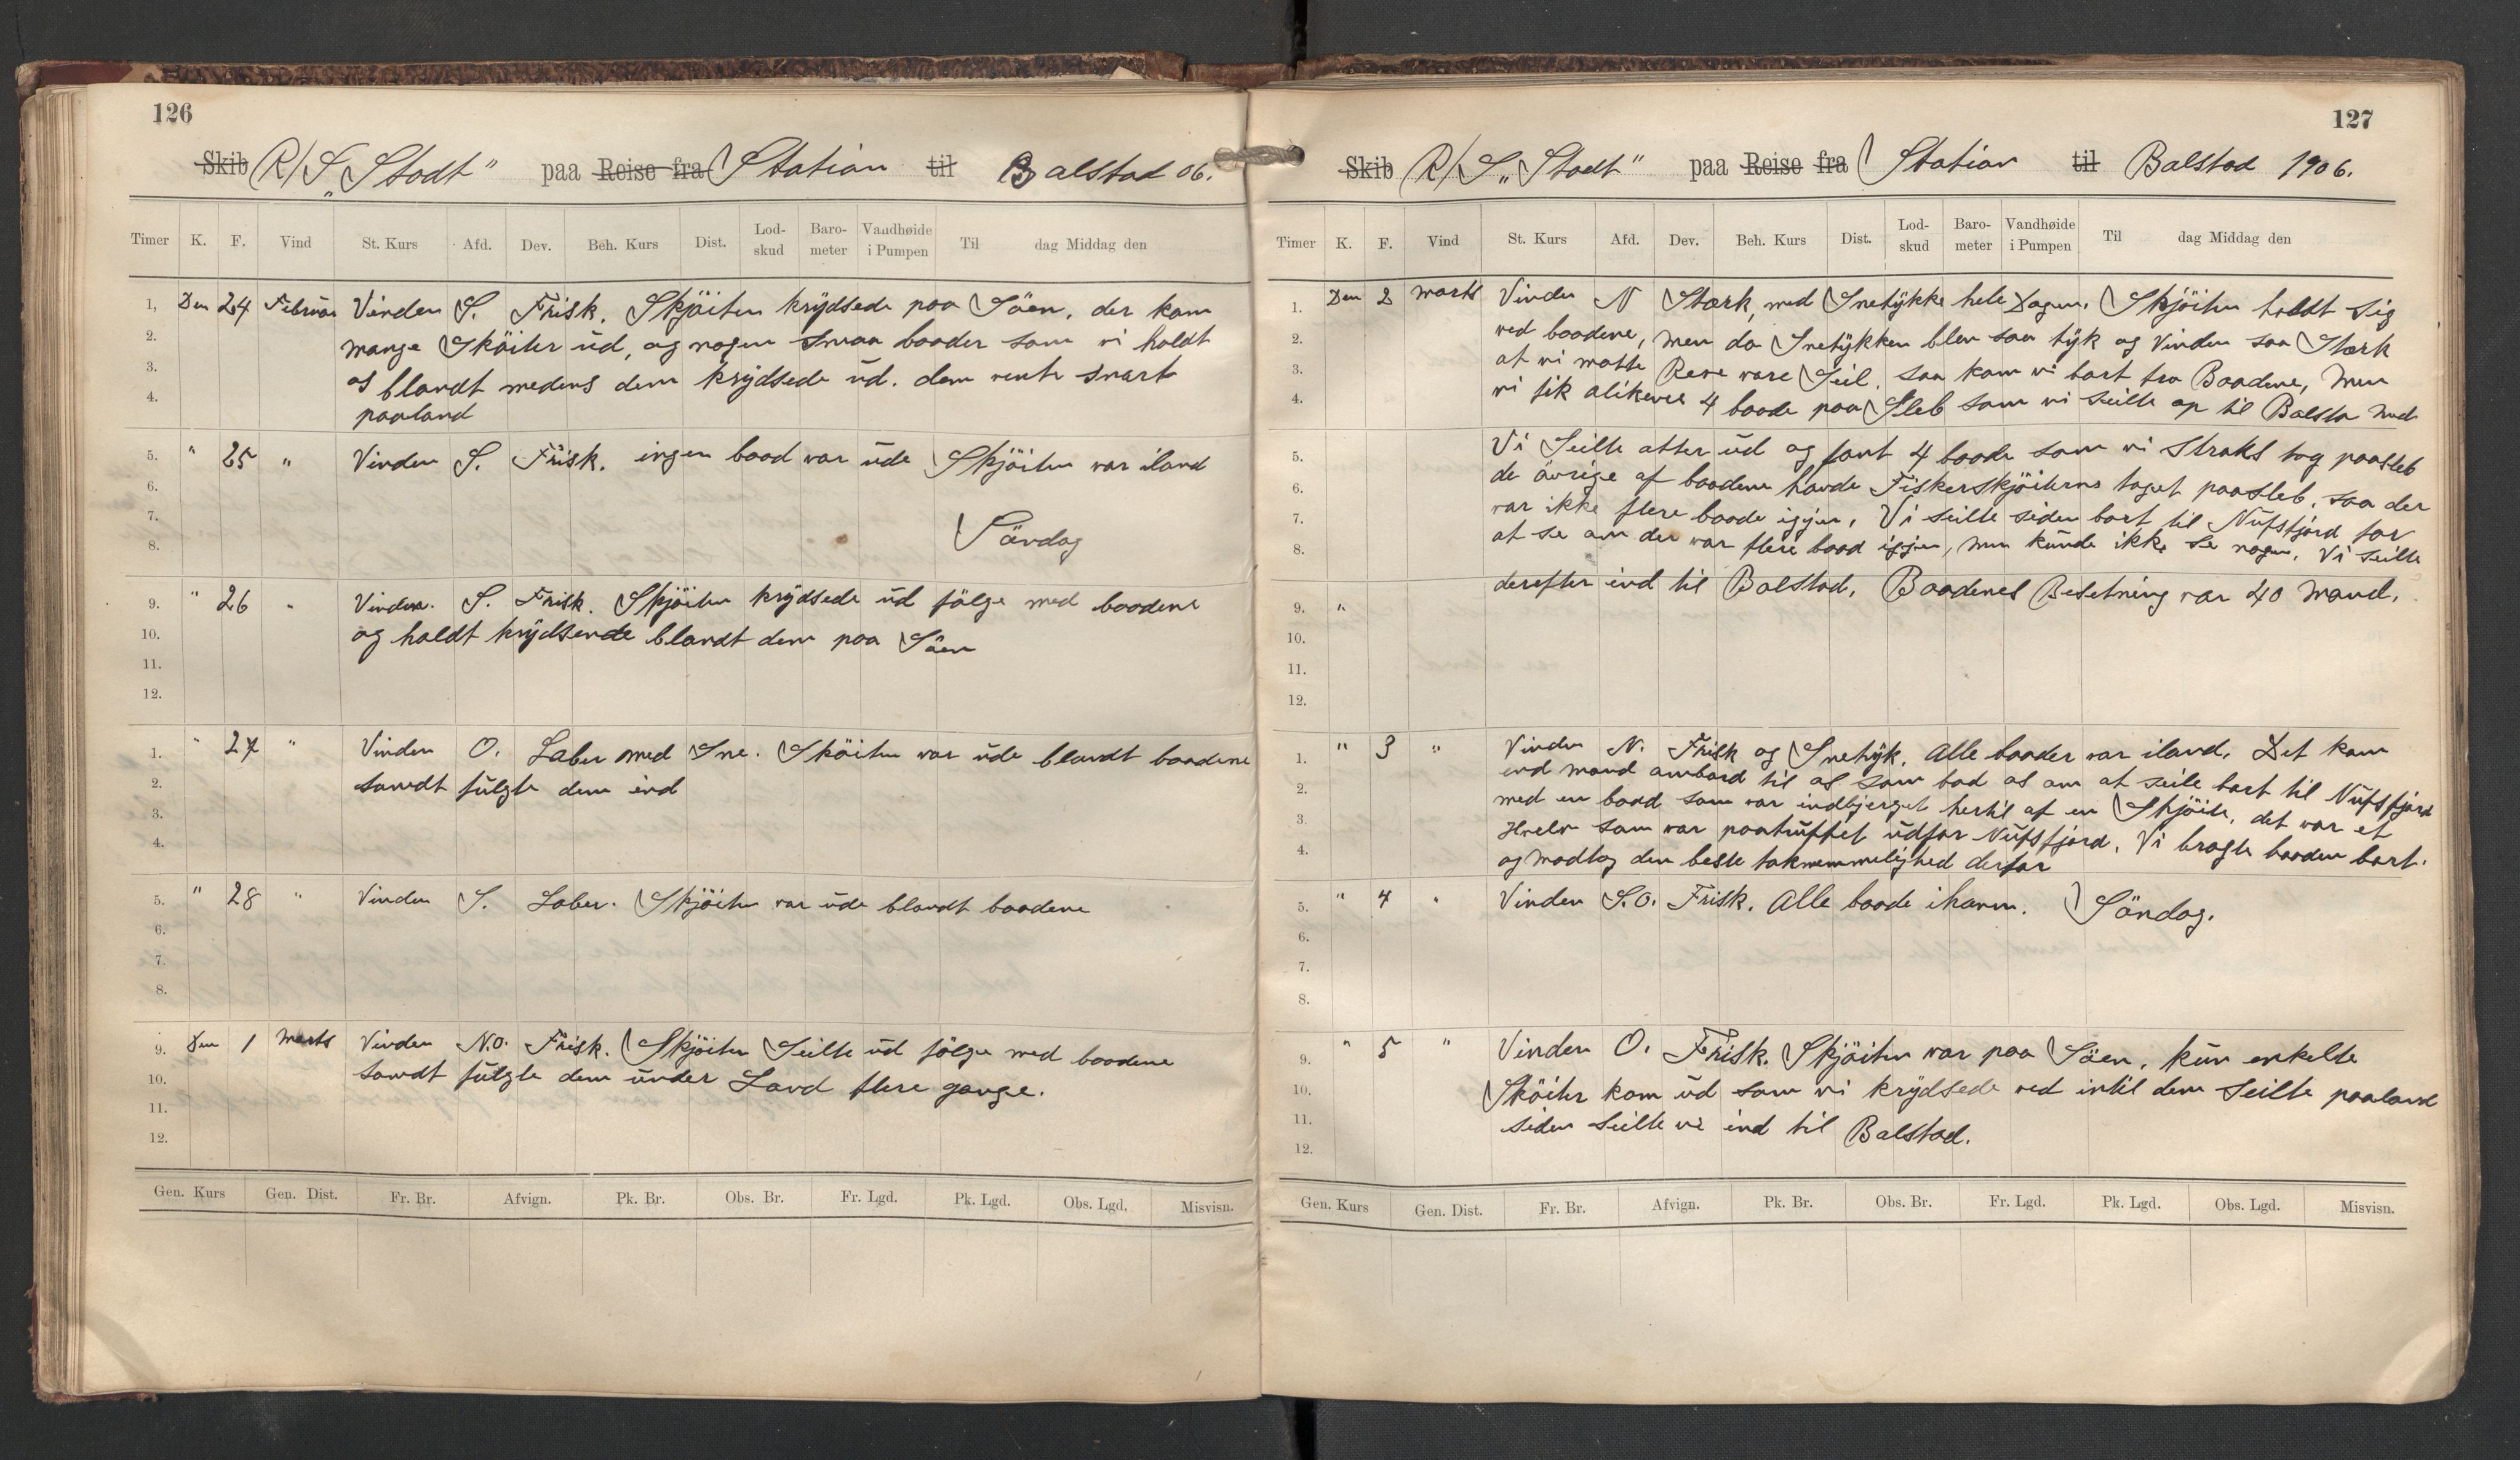 126
Skib R/S „Stadt" paa Reise fra Station til Balstad 06.
Timer K. F. Vind St. Kurs Afd. Dev. Beh. Kurs Dist. Lod-skud Baro-meter Vandhøide i Pumpen Til dag Middag den
1, Den 24 Februar Vinden S. Frisk. Skjöiten krydsede paa Söen, der kom
2. mange Sköiter ud, og nogen smaa baader som vi holdt
3. os blandt medens dem krydsede ud. dem vente snart
4. paaland
5. " 25 " Vinden S. Frisk. ingen baad var ude Skjöiten var iland
6.
7. Söndag
8.
9. " 26 " Vinden. S. Frisk. Skjöiten krydsede ud fölge med baadene
10. og holdt krydsende blandt dem paa Söen
11.
12.
1. " 27 " Vinden O. Laber med Sne. Sköiten var ude blandt baadene
2. samdt fulgte dem ind
3.
4.
5. " 28 " Vinden S. Laber. Skjöiten var ude blandt baadene
6.
7.
8.
9. Den 1 Marts Vinden N.O. Frisk. Skjöiten Seilte ud fölge med baadene
10. samdt fulgte dem under Land flere gange.
11.
12.
Gen. Kurs Gen. Dist. Fr. Br. Afvign. Pk. Br. Obs. Br. Fr. Lgd. Pk. Lgd. Obs. Lgd, Misvisn.
127
Skib R/S „Stadt" paa Reise fra Station til Balstad 1906.
Timer K. F. Vind St. Kurs Afd. Dev. Beh. Kurs Dist. Lod-skud Baro-meter Vandhøide i Pumpen Til dag Middag den
1. Den 2 Marts Vinden N Stærk, med Snetykke hele Dagen. Skjöiten holdt sig
2. ved baadene, men da Snetykken blev saa tyk og Vinden saa Stærk
3. at vi motte Reve vare Seil. saa kom vi bort fra Baadene, Men
4. vi fik alikevel 4 baade paa Sleb som vi seilte op til Balsta med
5. Vi Seilte atter ud og fant 4 baade som vi straks tog paasleb
6. de övrige af baadene havde Fiskerskjöiterne taget paasleb, saa der
7. var ikke flere baade igjen, Vi seilte siden bort til Nufsfjord for
8. at se om der var flere baad igjen, men kunde ikke se nogen. Vi seilte
9. " derefter ind til Balstad, Baadenes Besetning var 40 Mand.
10.
11.
12.
1. " 3 " Vinden N. Frisk og Snetyk. Alle baader var iland. Det kom
2. end mand ombord til os som bad os om at seile bort til Nufsfjord
3. med en baad som var indbjerget hertil af en Skjöite, det var et
4. Hvelv som var paatruffet udfor Nufsfjord. Vi bragte baaden bort.
og modtog den beste taknemmelighed derfor
5. " 4 " Vinden S.O. Frisk. Alle baade ihavn. Söndag.
6.
7.
8.
9. " 5 " Vinden O. Frisk. Skjöiten var paa Söen, kun enkelte
10. Sköiter kom ud som vi krydsede ved intil dem Seilte paaland
11. siden seilte vi ind til Balstad.
12.
Gen. Kurs Gen. Dist. Fr. Br. Afvign. Pk. Br. Obs. Br. Fr. Lgd. Pk. Lgd. Obs. Lgd. Misvisn.